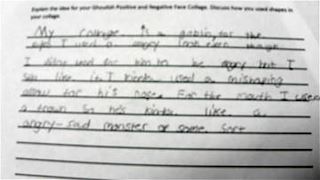 Explain the idea for your Ghoulish Positive and Negative Face Collage. Discuss how you used shapes in
your collage.
My collage is a goblin, for the
eyes I used a angry look even though
I for him to be angry but I
like it. I kinda used a mishaping
for his nose. For the mouth I used
a frown so he's kinda like a
angry-sad monster of some sort